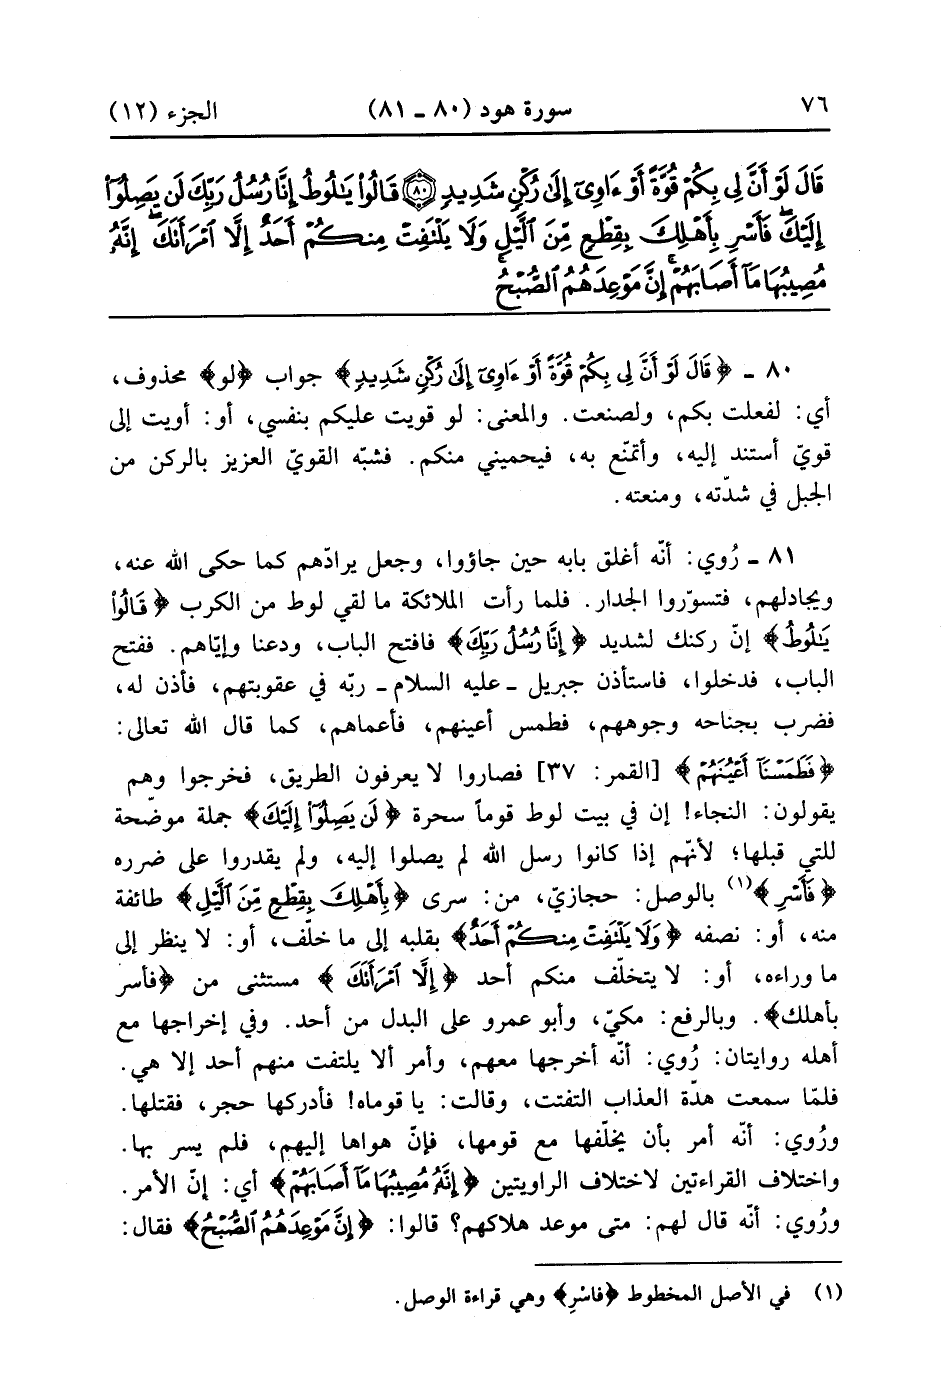 ٧٦ سورة هود (٨٠ ـ ٨١) الجزء (١٢)
قَالَ لَوْ أَنَّ لِي بِكُمْ قُوَّةً أَوْ ءَاوِىٓ إِلَىٰ رُكْنٍ شَدِيدٍ ﴿٨٠﴾ قَالُوا۟ يَٰلُوطُ إِنَّا رُسُلُ رَبِّكَ لَن يَصِلُوٓا۟
إِلَيْكَ ۖ فَأَسْرِ بِأَهْلِكَ بِقِطْعٍ مِّنَ ٱلَّيْلِ وَلَا يَلْتَفِتْ مِنكُمْ أَحَدٌ إِلَّا ٱمْرَأَتَكَ ۖ إِنَّهُۥ
مُصِيبُهَا مَآ أَصَابَهُمْ ۚ إِنَّ مَوْعِدَهُمُ ٱلصُّبْحُ ۚ
٨٠ ـ ﴿قَالَ لَوْ أَنَّ لِي بِكُمْ قُوَّةً أَوْ ءَاوِىٓ إِلَىٰ رُكْنٍ شَدِيدٍ﴾ جواب ﴿لو﴾ محذوف،
أي: لفعلت بكم، ولصنعت. والمعنى: لو قويت عليكم بنفسي، أو: أويت إلى
قويّ أستند إليه، وأتمنّع به، فيحميني منكم. فشبّه القويّ العزيز بالركن من
الجبل في شدّته، ومنعته.
٨١ ـ رُوي: أنّه أغلق بابه حين جاؤوا، وجعل يرادّهم كما حكى الله عنه،
ويجادلهم، فتسوّروا الجدار. فلما رأت الملائكة ما لقي لوط من الكرب ﴿قَالُوا۟
يَٰلُوطُ﴾ إنّ ركنك لشديد ﴿إِنَّا رُسُلُ رَبِّكَ﴾ فافتح الباب، ودعنا وإيّاهم. ففتح
الباب، فدخلوا، فاستأذن جبريل ـ عليه السلام ـ ربّه في عقوبتهم، فأذن له،
فضرب بجناحه وجوههم، فطمس أعينهم، فأعماهم، كما قال الله تعالى:
﴿فَطَمَسْنَآ أَعْيُنَهُمْ﴾ [القمر: ٣٧] فصاروا لا يعرفون الطريق، فخرجوا وهم
يقولون: النجاء! إن في بيت لوط قوماً سحرة ﴿لَن يَصِلُوٓا۟ إِلَيْكَ﴾ جملة موضّحة
للتي قبلها؛ لأنّهم إذا كانوا رسل الله لم يصلوا إليه، ولم يقدروا على ضرره
﴿فَأَسْرِ﴾(١) بالوصل: حجازيّ، من: سرى ﴿بِأَهْلِكَ بِقِطْعٍ مِّنَ ٱلَّيْلِ﴾ طائفة
منه، أو: نصفه ﴿وَلَا يَلْتَفِتْ مِنكُمْ أَحَدٌ﴾ بقلبه إلى ما خلّف، أو: لا ينظر إلى
ما وراءه، أو: لا يتخلّف منكم أحد ﴿إِلَّا ٱمْرَأَتَكَ﴾ مستثنى من ﴿فأسر
بأهلك﴾. وبالرفع: مكيّ، وأبو عمرو على البدل من أحد. وفي إخراجها مع
أهله روايتان: رُوي: أنّه أخرجها معهم، وأمر ألا يلتفت منهم أحد إلا هي.
فلمّا سمعت هدّة العذاب التفتت، وقالت: يا قوماه! فأدركها حجر، فقتلها.
ورُوي: أنّه أمر بأن يخلّفها مع قومها، فإنّ هواها إليهم، فلم يسر بها.
واختلاف القراءتين لاختلاف الراويتين ﴿إِنَّهُۥ مُصِيبُهَا مَآ أَصَابَهُمْ﴾ أي: إنّ الأمر.
ورُوي: أنّه قال لهم: متى موعد هلاكهم؟ قالوا: ﴿إِنَّ مَوْعِدَهُمُ ٱلصُّبْحُ﴾ فقال:
(١) في الأصل المخطوط ﴿فاسْرِ﴾ وهي قراءة الوصل.